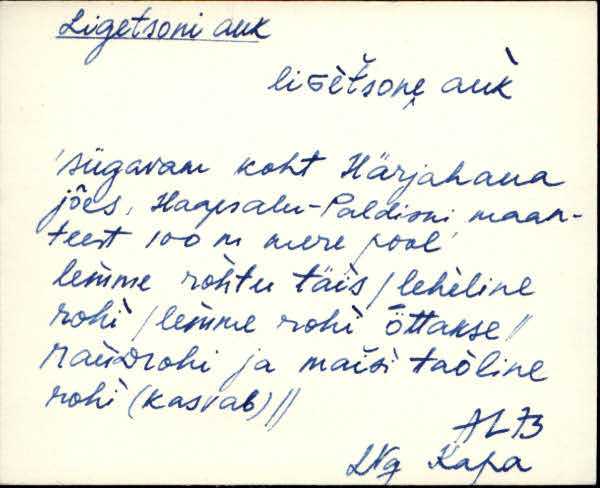 Ligetsoni auk
liɢètšone̬ aùk
'sügavam koht Härjahaua
jões, Haapsalu-Paldiski maan-
teest 100 m mere pool'
lemme rohtu täis / leheline
rohi / lemme rohi õttakse //
raùdrohi ja maìsi taòline
rohì (kasvab) //
AL 73
LNg Kapa